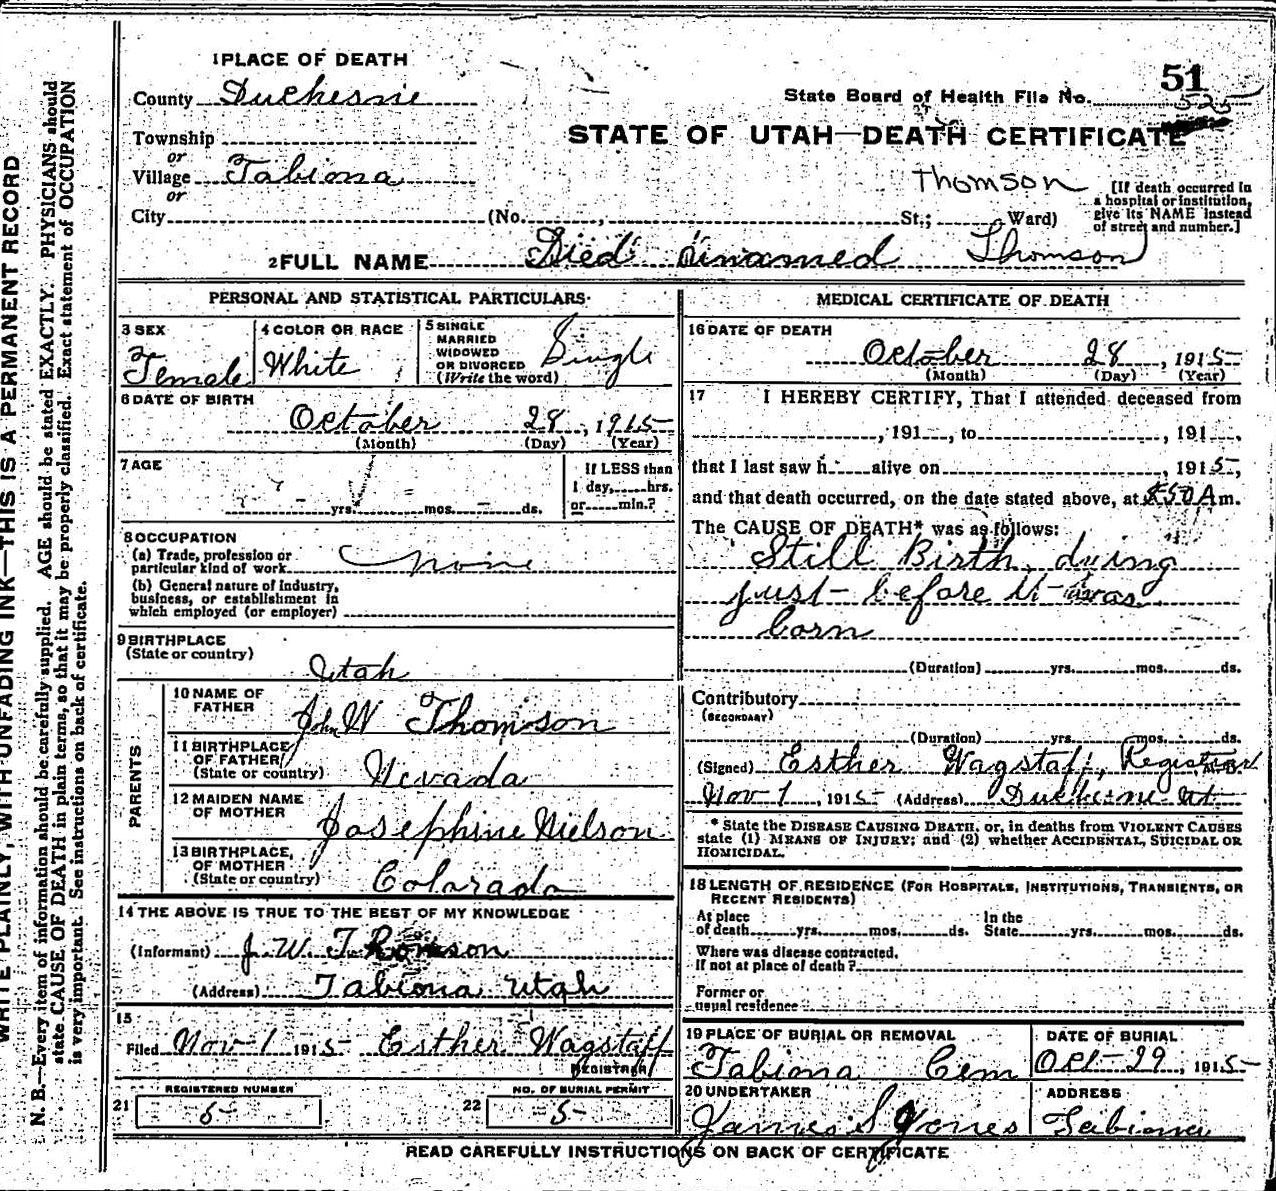 WRITE PLAINLY, WITH UNFADING INK—THIS IS A PERMANENT RECORD
N. B.—Every item of information should be carefully supplied. AGE should be stated EXACTLY. PHYSICIANS should
state CAUSE OF DEATH in plain terms, so that it may be properly classified. Exact statement of OCCUPATION
is very important. See instructions on back of certificate.
1 PLACE OF DEATH
51
County Duchesne
State Board of Health File No. 525
Township
STATE OF UTAH—DEATH CERTIFICATE
or
Village Tabiona
Thomson
or
City (No. , St.; Ward)
[If death occurred in
a hospital or institution,
give its NAME instead
of street and number.]
2 FULL NAME Died Unnamed Thomson
PERSONAL AND STATISTICAL PARTICULARS
3 SEX
Female
4 COLOR OR RACE
White
5 SINGLE
MARRIED
WIDOWED
OR DIVORCED
(Write the word)
Single
6 DATE OF BIRTH
October 28, 1915
(Month) (Day) (Year)
7 AGE
yrs. mos. ds.
If LESS than
1 day, hrs.
or min.?
8 OCCUPATION
(a) Trade, profession or
particular kind of work none
(b) General nature of industry,
business, or establishment in
which employed (or employer)
9 BIRTHPLACE
(State or country)
Utah
PARENTS
10 NAME OF
FATHER
John W Thomson
11 BIRTHPLACE
OF FATHER
(State or country)
Nevada
12 MAIDEN NAME
OF MOTHER
Josephine Nielson
13 BIRTHPLACE,
OF MOTHER
(State or country)
Colorado
14 THE ABOVE IS TRUE TO THE BEST OF MY KNOWLEDGE
(Informant) J. W. Thomson
(Address) Tabiona Utah
15
Filed Nov 1 1915 Esther Wagstaff
REGISTRAR
REGISTERED NUMBER
21 5
NO. OF BURIAL PERMIT
22 5
MEDICAL CERTIFICATE OF DEATH
16 DATE OF DEATH
October 28, 1915
(Month) (Day) (Year)
17 I HEREBY CERTIFY, That I attended deceased from
, 191 , to , 191 ,
that I last saw h alive on , 1915,
and that death occurred, on the date stated above, at 8:50 A m.
The CAUSE OF DEATH* was as follows:
Still Birth, dying
just before it was
born
(Duration) yrs. mos. ds.
Contributory
(SECONDARY)
(Duration) yrs. mos. ds.
(Signed) Esther Wagstaff, Registrar M. D.
Nov 1, 1915 (Address) Duchesne Ut
* State the DISEASE CAUSING DEATH, or, in deaths from VIOLENT CAUSES
state (1) MEANS OF INJURY; and (2) whether ACCIDENTAL, SUICIDAL OR
HOMICIDAL.
18 LENGTH OF RESIDENCE (FOR HOSPITALS, INSTITUTIONS, TRANSIENTS, OR
RECENT RESIDENTS)
At place
of death yrs. mos. ds.
In the
State yrs. mos. ds.
Where was disease contracted,
if not at place of death?
Former or
usual residence
19 PLACE OF BURIAL OR REMOVAL
Tabiona Cem
DATE OF BURIAL
Oct-29, 1915
20 UNDERTAKER
James S Jones
ADDRESS
Tabiona
READ CAREFULLY INSTRUCTIONS ON BACK OF CERTIFICATE